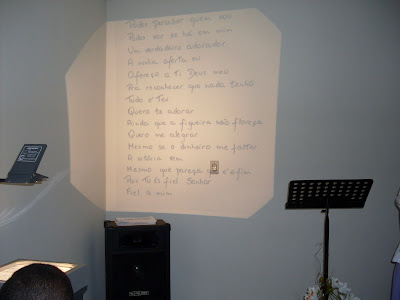 Podes perceber quem sou
Podes ver se há em mim
Um verdadeiro adorador
A minha oferta eu
Ofereço a Ti Deus meu
Pra reconhecer que nada tenho
Tudo é Teu
Quero te adorar
Ainda que a figueira não floresça
Quero me alegrar
Mesmo se o dinheiro me faltar
A vitória vem
Mesmo que pareça que é o fim
Pois Tu és fiel Senhor
Fiel a mim